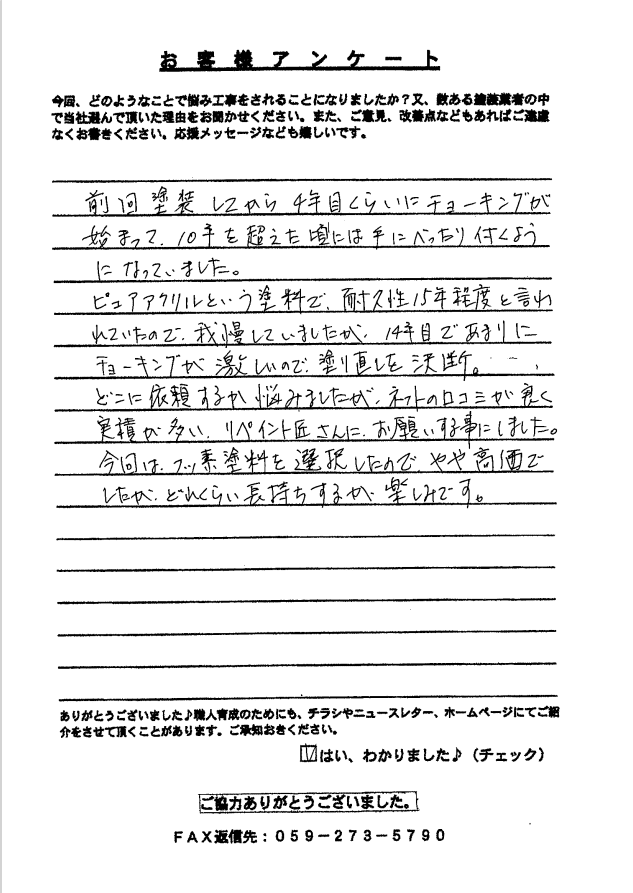 お客様アンケート
今回、どのようなことで悩み工事をされることになりましたか？又、数ある塗装業者の中
で当社選んで頂いた理由をお聞かせください。また、ご意見、改善点などもあればご遠慮
なくお書きください。応援メッセージなども嬉しいです。
前回塗装してから4年目くらいにチョーキングが
始まって、10年を超えた頃には手にべったり付くよう
になっていました。
ピュアアクリルという塗料で、耐久性15年程度と言わ
れていたので、我慢していましたが、14年目であまりに
チョーキングが激しいので、塗り直しを決断。……，
どこに依頼するか悩みましたが、ネットの口コミが良く
実積が多い、リペイント匠さんに、お願いする事にしました。
今回は、フッ素塗料を選択したので、やや高価で
したが、どれくらい長持ちするか、楽しみです。
ありがとうございました♪職人育成のためにも、チラシやニュースレター、ホームページにてご紹
介をさせて頂くことがあります。ご承知おきください。
☑はい、わかりました♪（チェック）
ご協力ありがとうございました。
ＦＡＸ返信先：０５９－２７３－５７９０